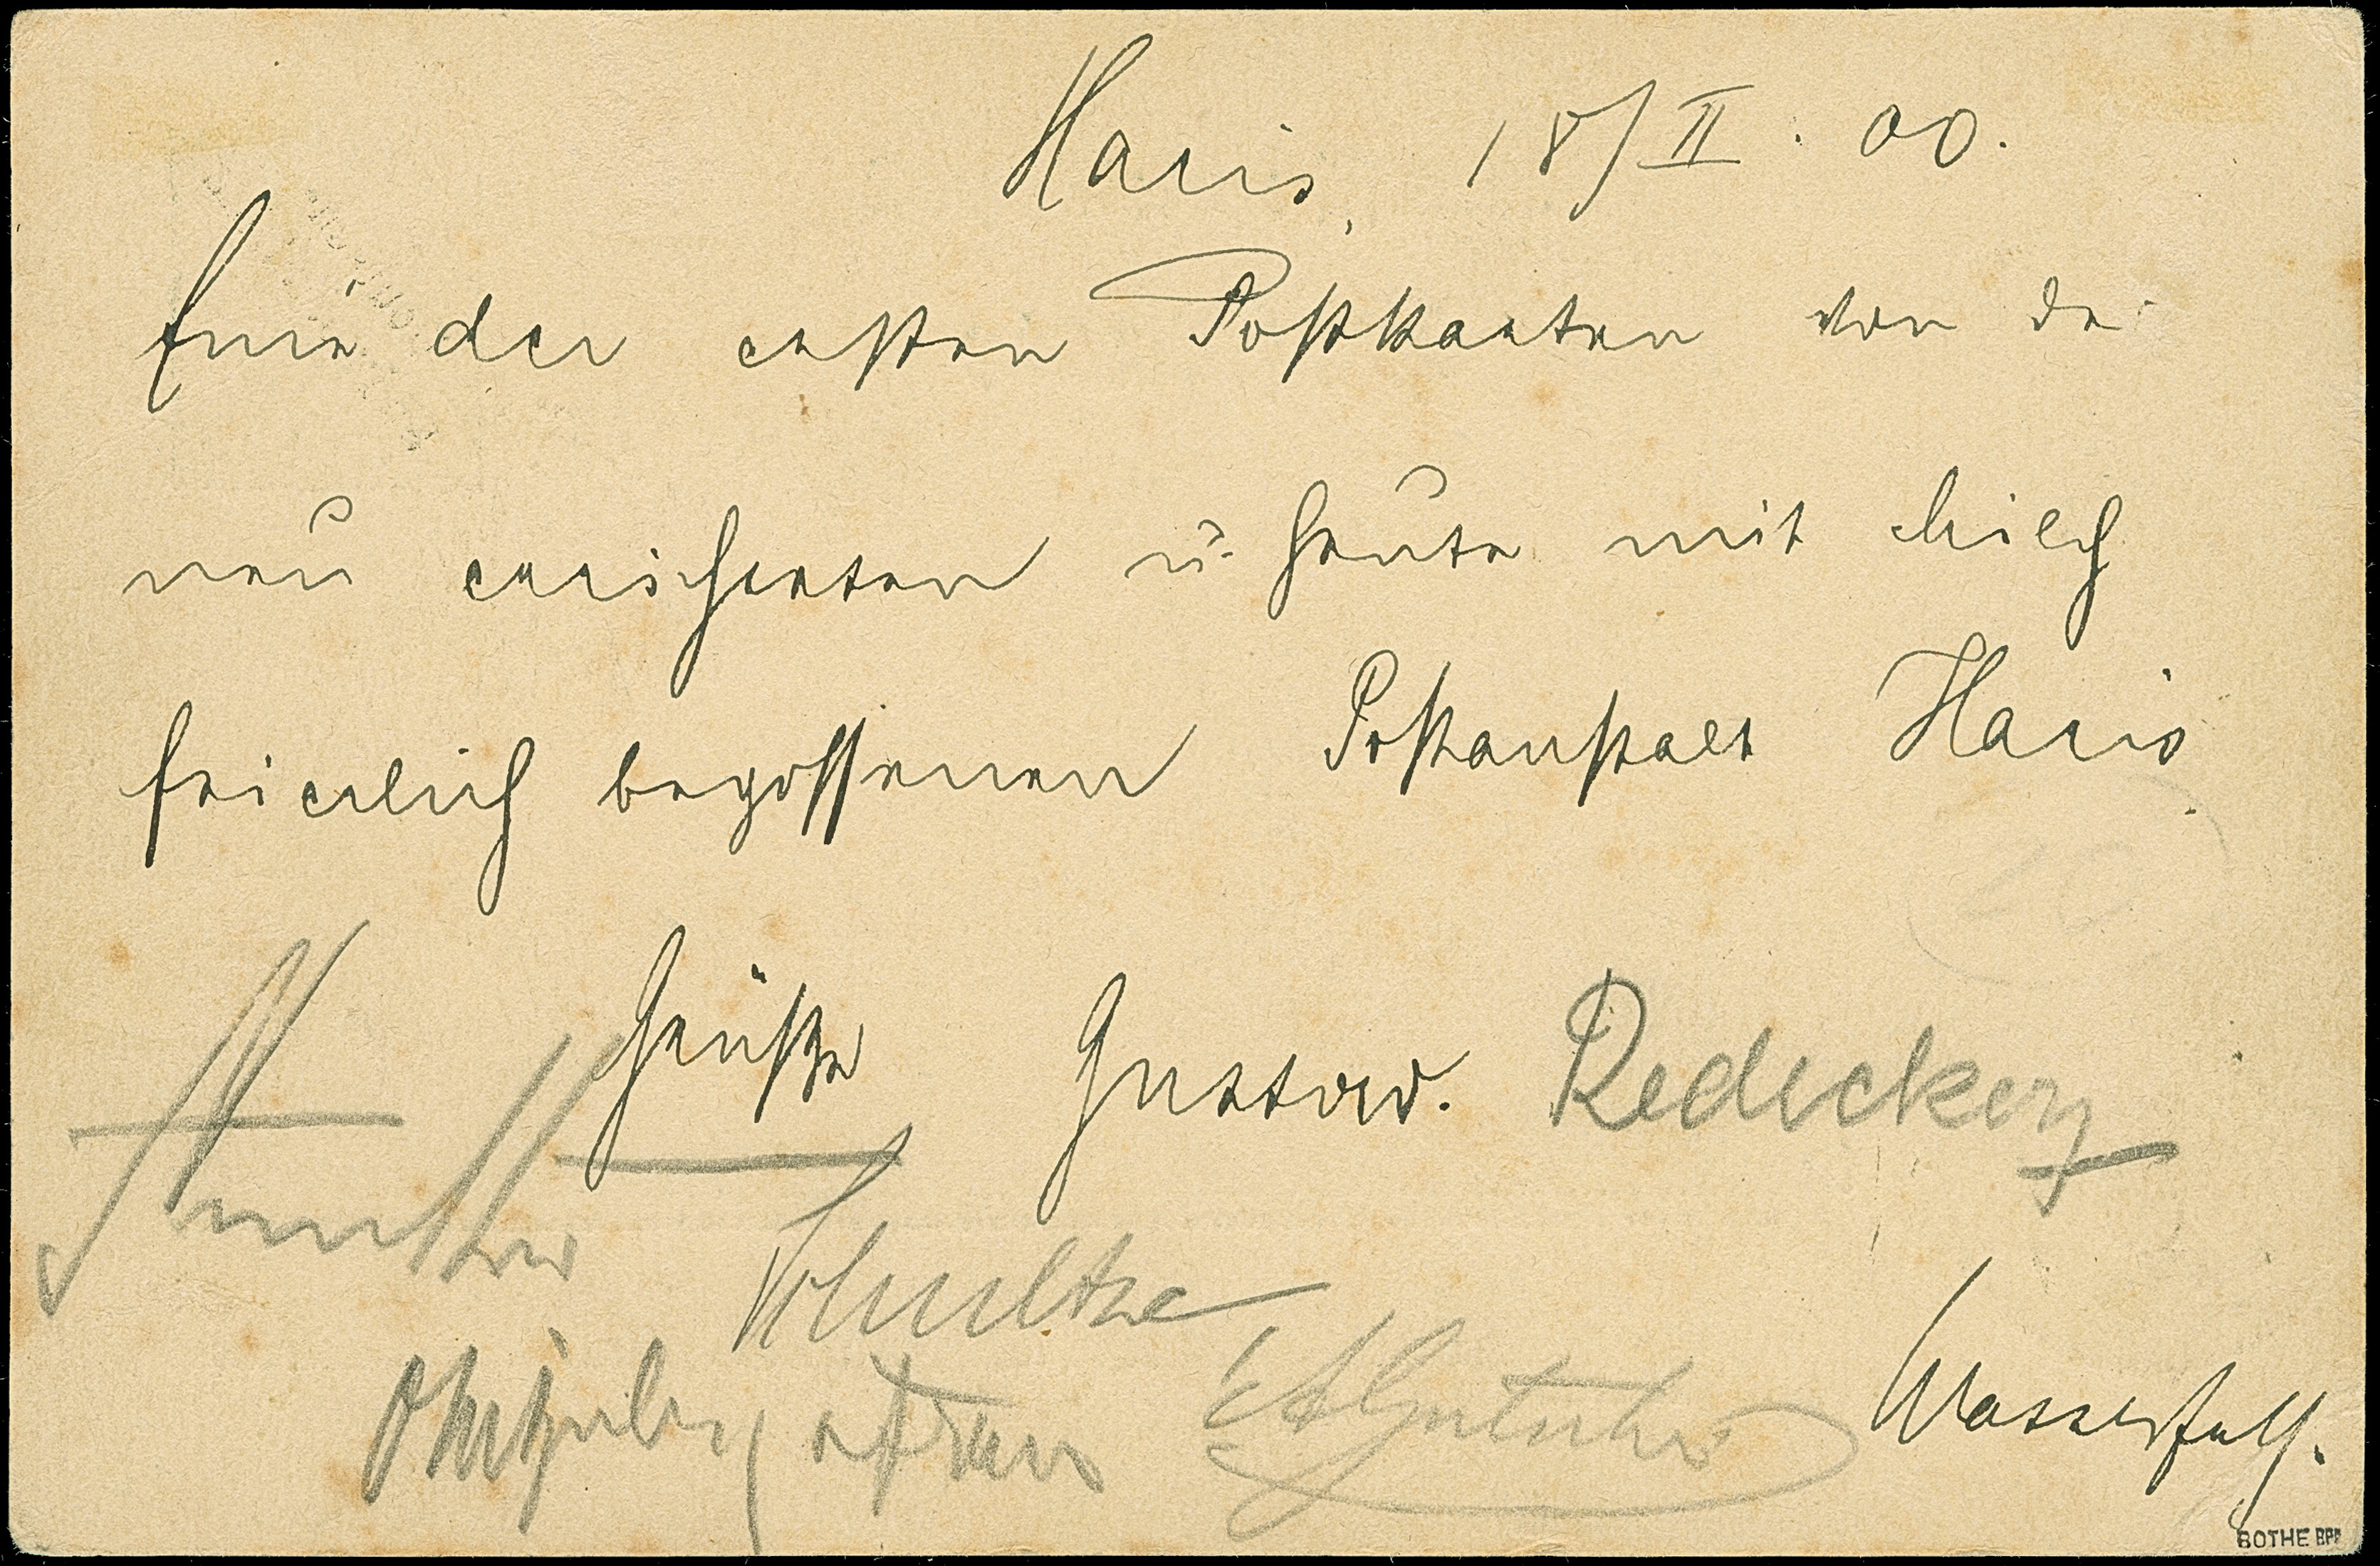 Haris, 18/II. 00.
Eine der ersten Postkarten von der
neu errichteten u. heute mit Milch
feierlich begossenen Postanstalt Haris.
Grüße Gustav. Redecker
Schultze
Wasserfall.
BOTHE BPP